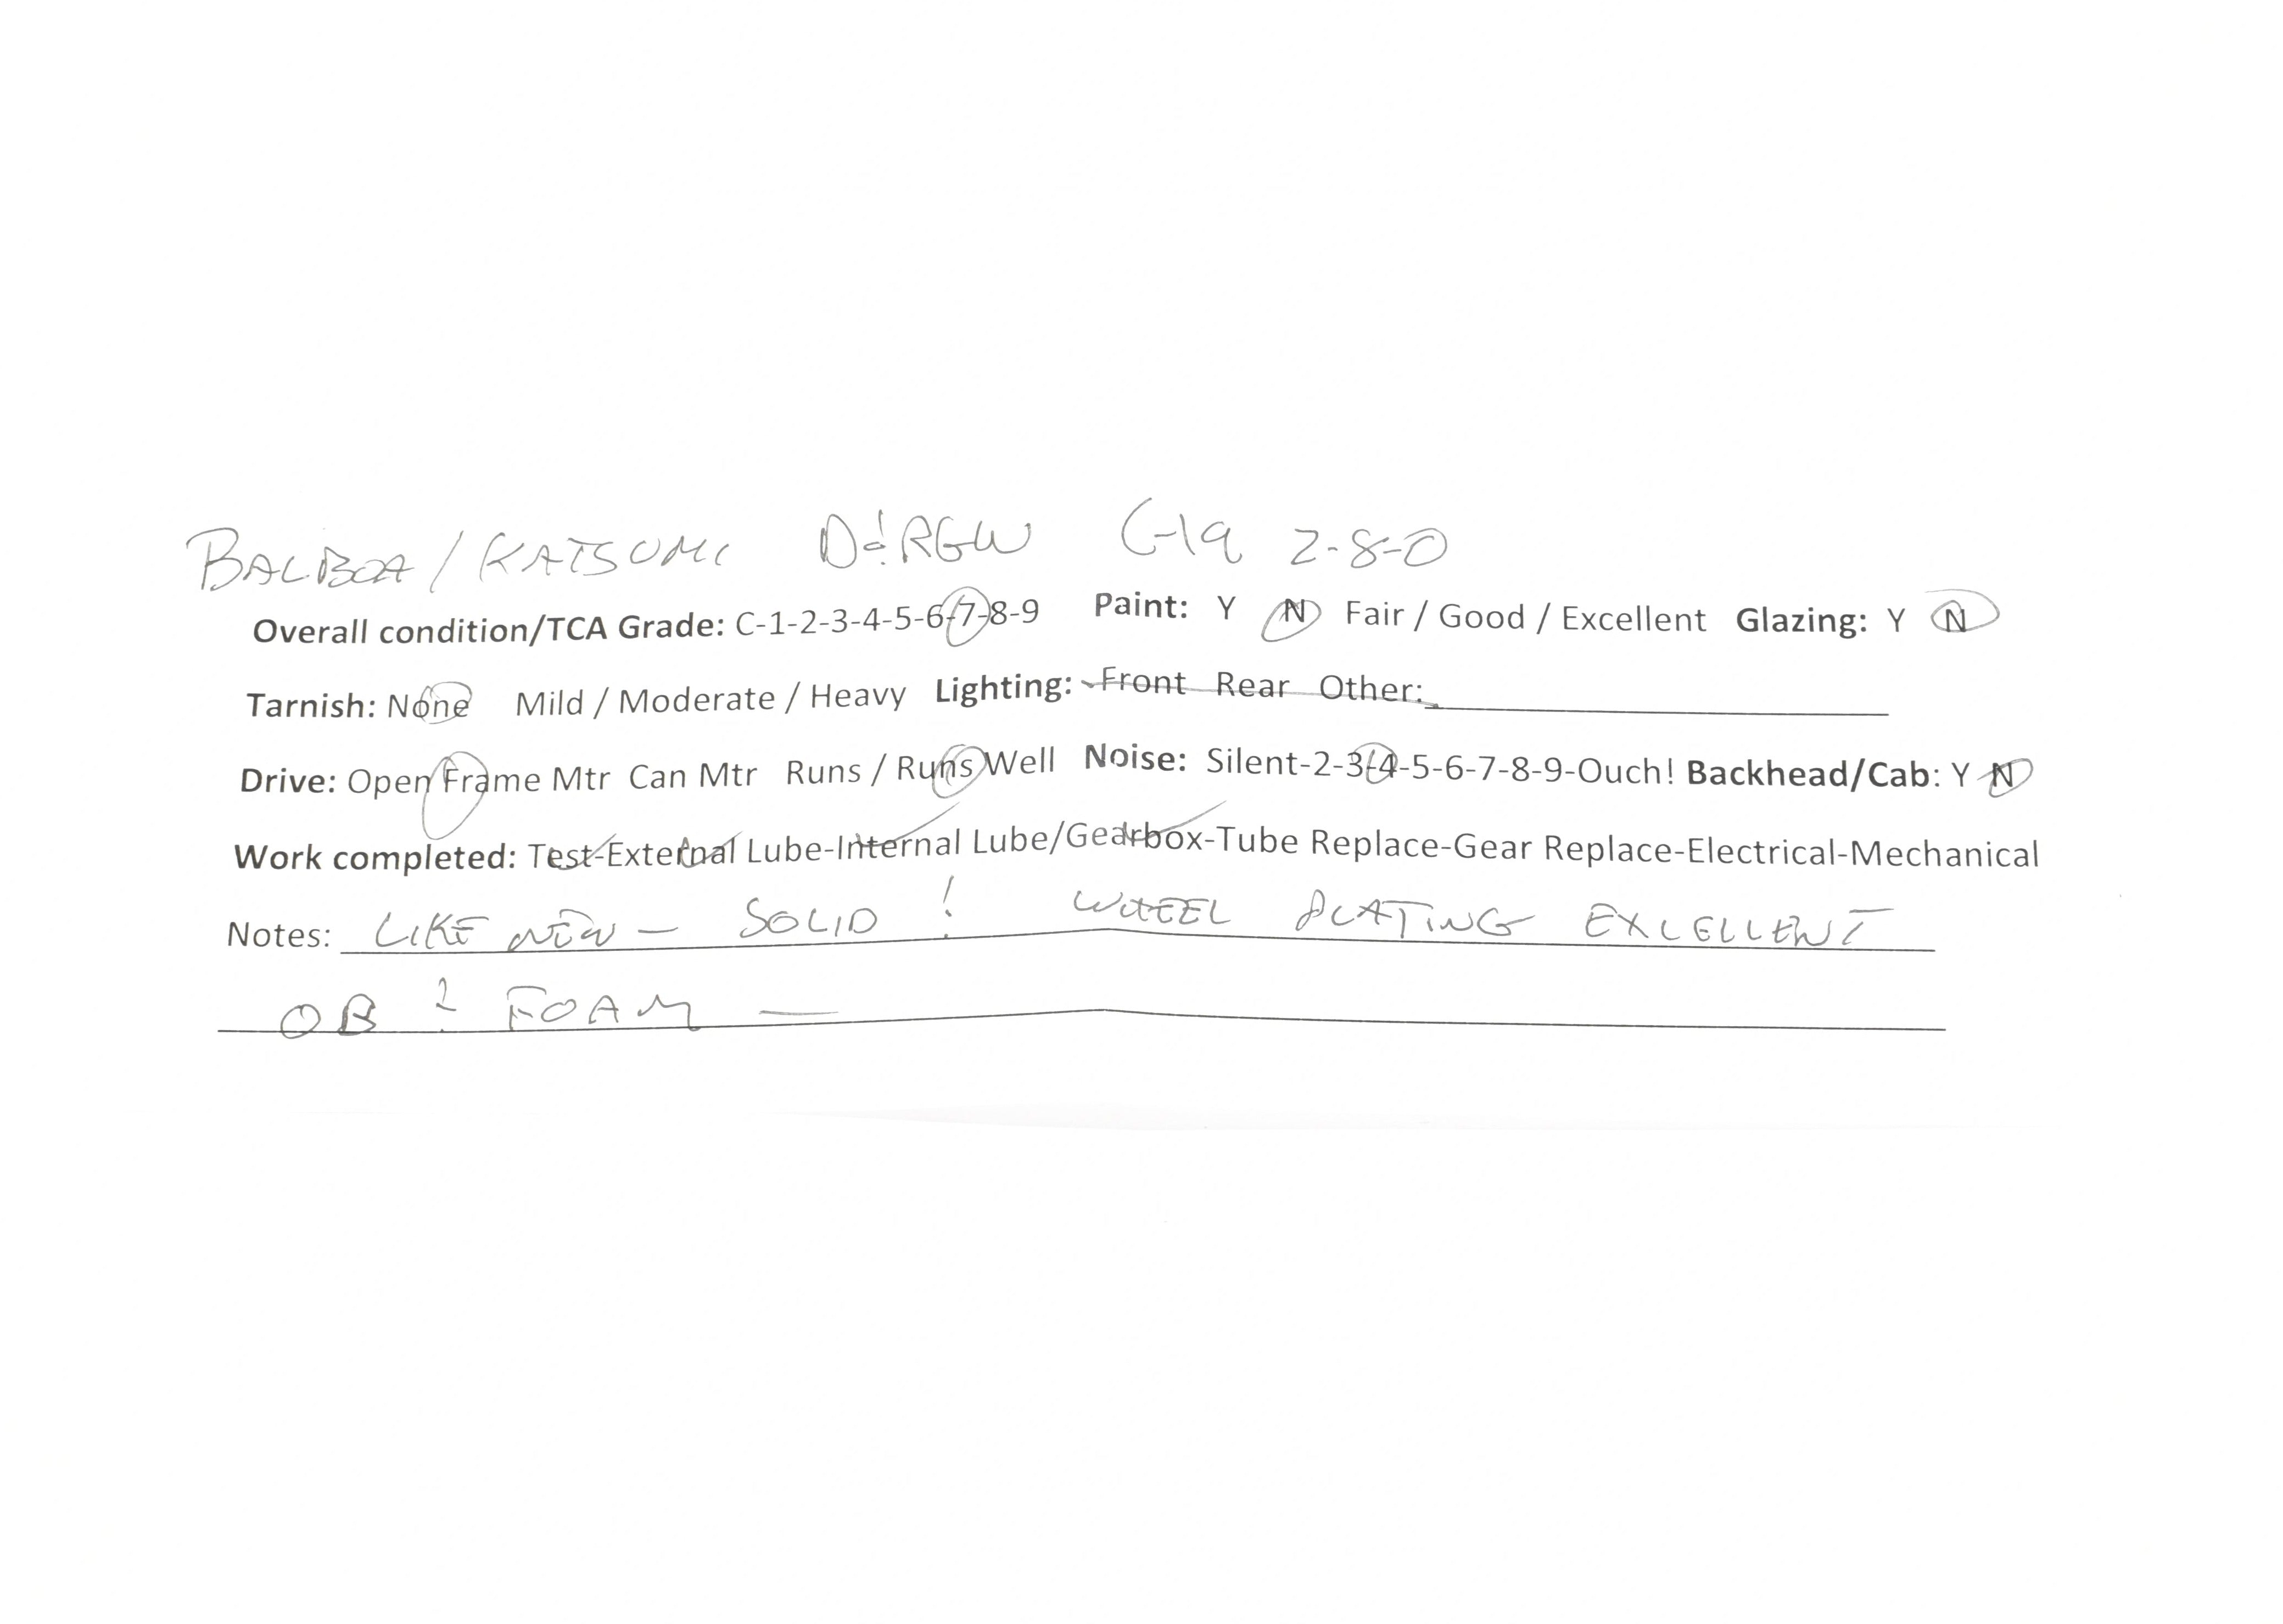 BALBOA / KATSUMI D&RGW C-19 2-8-0
Overall condition/TCA Grade: C-1-2-3-4-5-6-7-8-9 Paint: Y N Fair / Good / Excellent Glazing: Y N
Tarnish: None Mild / Moderate / Heavy Lighting: Front Rear Other:
Drive: Open Frame Mtr Can Mtr Runs / Runs Well Noise: Silent-2-3-4-5-6-7-8-9-Ouch! Backhead/Cab: Y N
Work completed: Test-External Lube-Internal Lube/Gearbox-Tube Replace-Gear Replace-Electrical-Mechanical
Notes: LIKE NEW - SOLID ! WHEEL PLATING EXCELLENT
OB & FOAM —